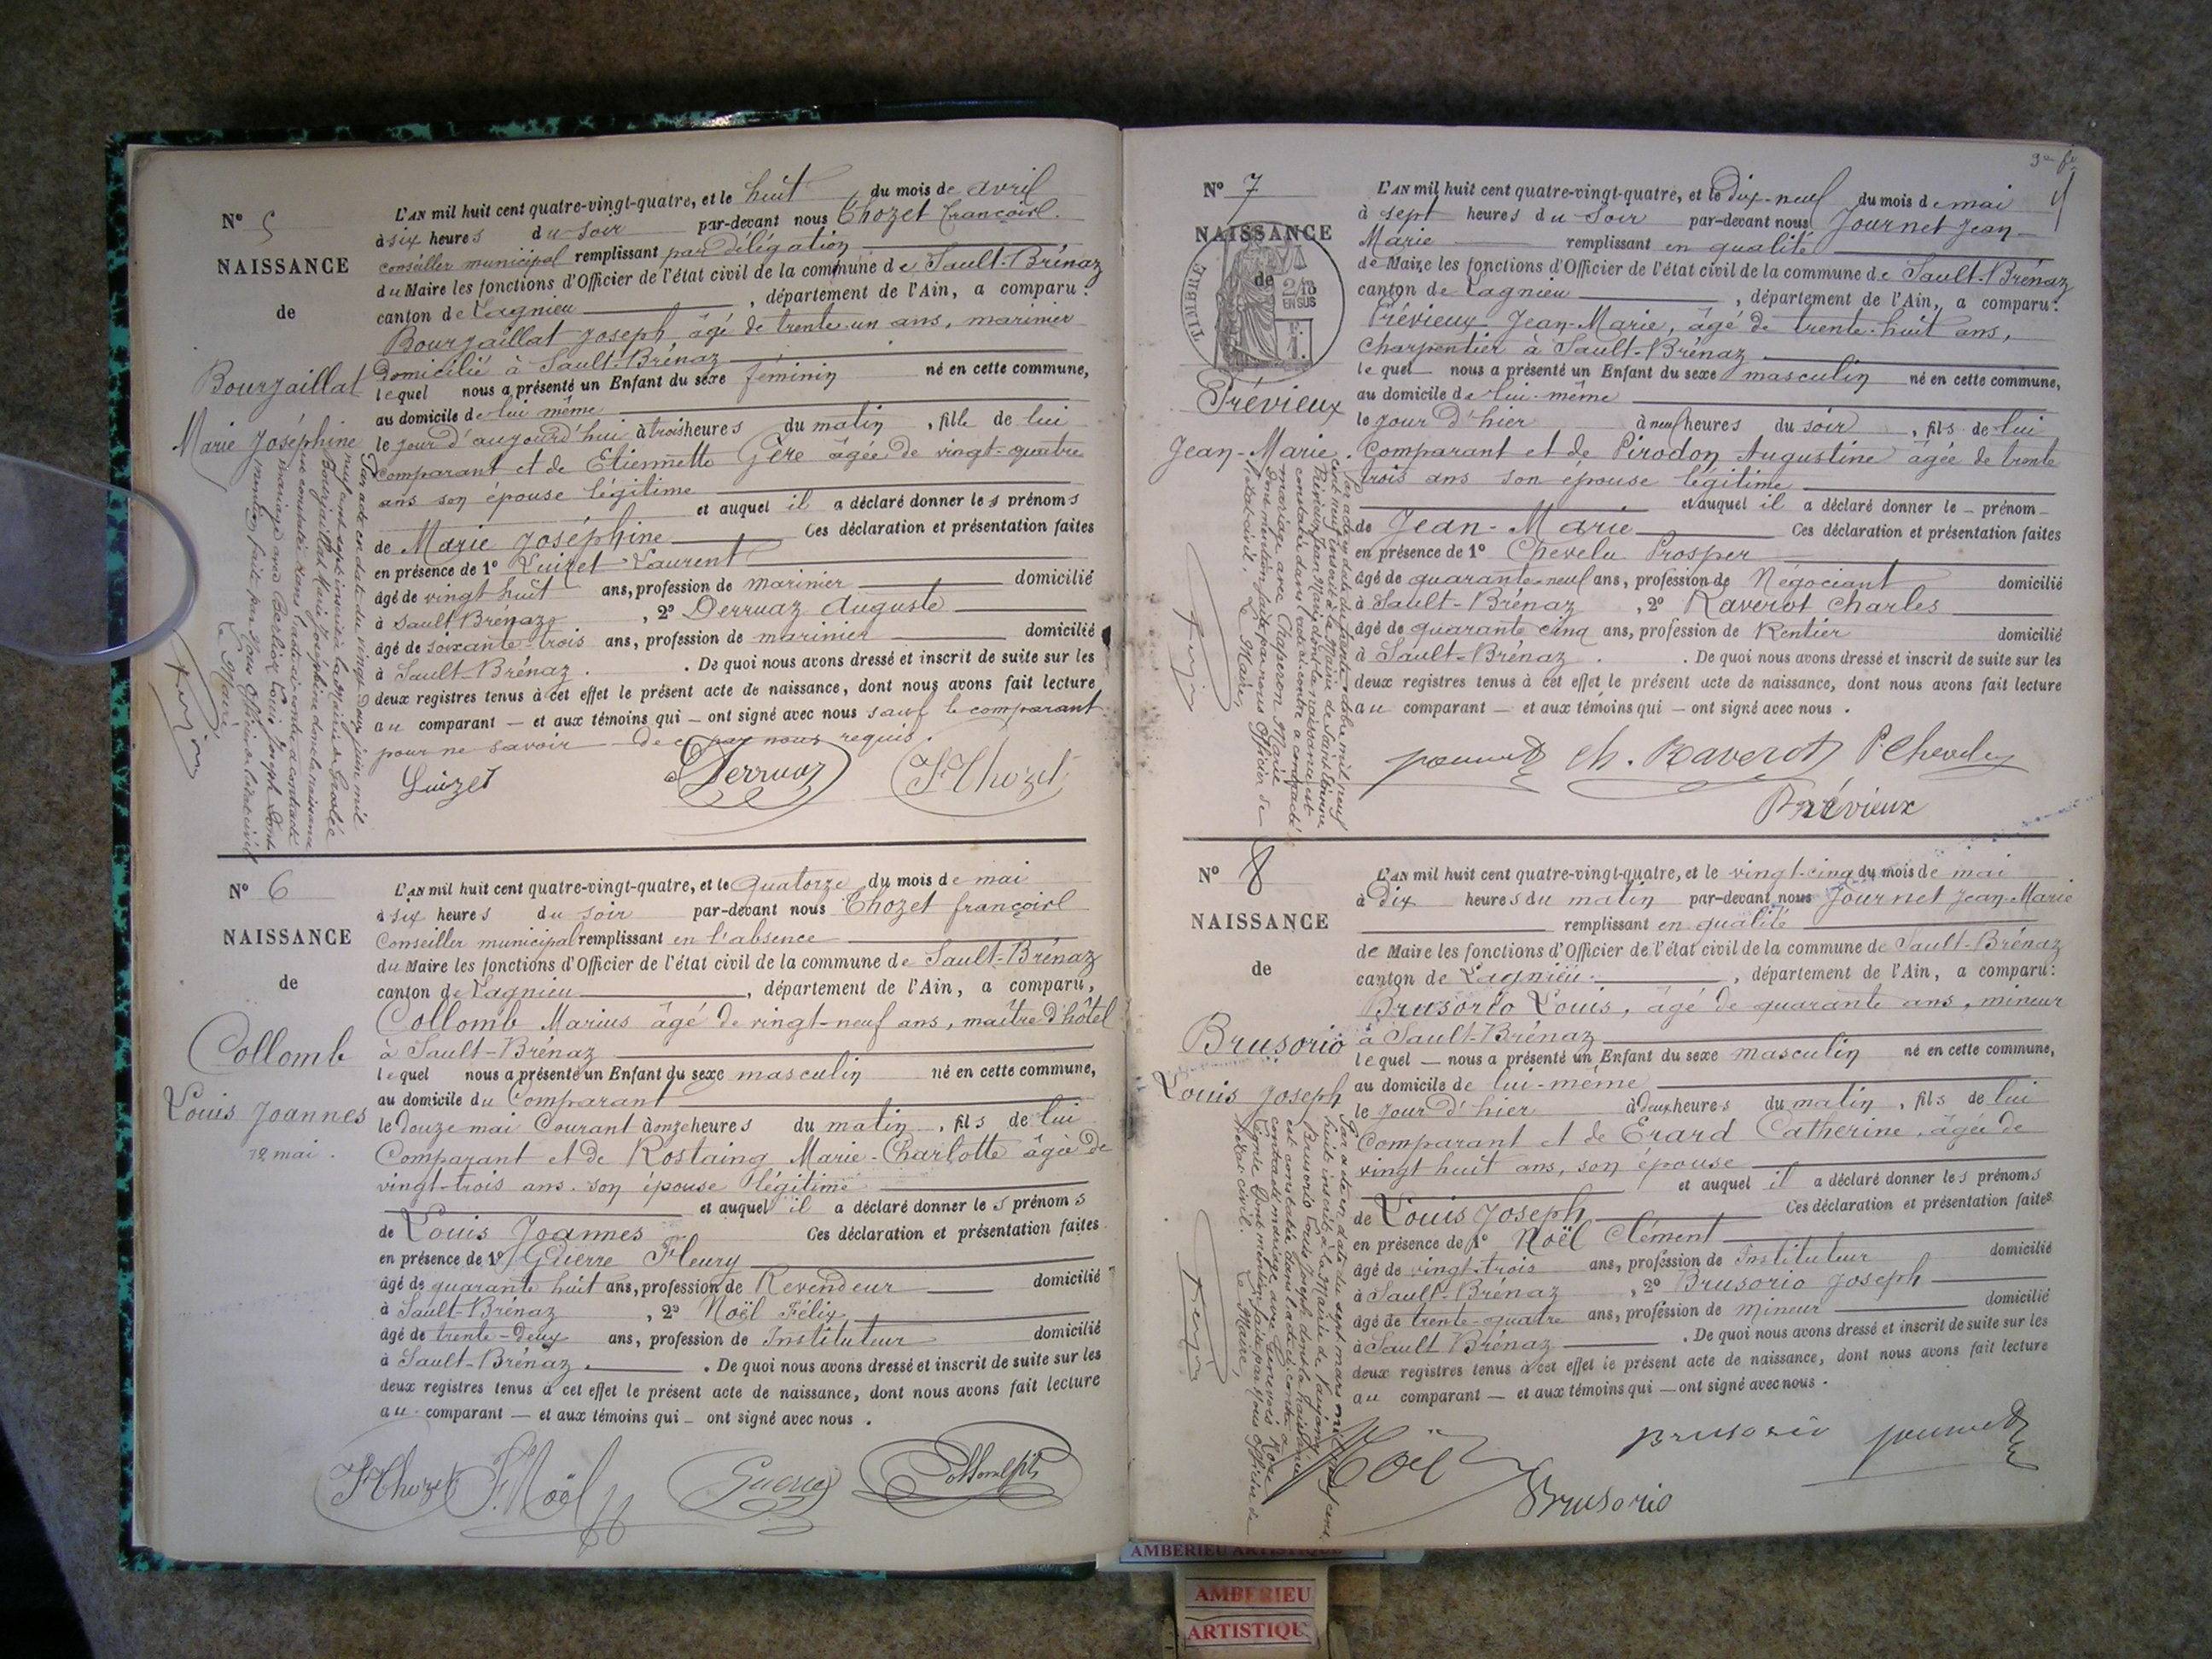 N° 5
NAISSANCE
de
Bourjaillat
Marie Joséphine
L'AN mil huit cent quatre-vingt-quatre, et le huit du mois de avril
à six heures du soir par-devant nous Thozet françois
conseiller municipal remplissant par délégation
du Maire les fonctions d'Officier de l'état civil de la commune de Sault-Brénaz
canton de Lagnieu, département de l'Ain, a comparu :
Bourjaillat Joseph, âgé de trente-un ans, marinier
Domicilié à Sault-Brénaz
lequel nous a présenté un Enfant du sexe féminin né en cette commune,
au domicile de lui même
le jour d'aujourd'hui à trois heures du matin, fille de lui
comparant et de Etiennette Gère âgée de vingt-quatre
ans son épouse légitime
et auquel il a déclaré donner les prénoms
de Marie Joséphine Ces déclaration et présentation faites
en présence de 1° Luizet Laurent
âgé de vingt huit ans, profession de marinier domicilié
à Sault-Brénaz, 2° Derruaz Auguste
âgé de soixante-trois ans, profession de marinier domicilié
à Sault-Brénaz. De quoi nous avons dressé et inscrit de suite sur les
deux registres tenus à cet effet le présent acte de naissance, dont nous avons fait lecture
au comparant — et aux témoins qui — ont signé avec nous sauf le comparant
pour ne savoir de ce par nous requis.
Luizet Derruaz F Thozet
Par acte en date du vingt-deux juin mil
neuf cent sept inscrit à la Mairie de
Bourjaillat Marie Joséphine dont la naissance
est constatée dans l'acte ci-contre a contracté
mariage avec Louis Joseph Dont
mention faite par Nous Officier de l'état civil
Le Maire
N° 6
NAISSANCE
de
Collomb
Louis Joannes
12 mai.
L'AN mil huit cent quatre-vingt-quatre, et le Quatorze du mois de mai
à six heures du soir par-devant nous Thozet françois
Conseiller municipal remplissant en l'absence
du Maire les fonctions d'Officier de l'état civil de la commune de Sault-Brénaz
canton de Lagnieu, département de l'Ain, a comparu,
Collomb Marius âgé de vingt-neuf ans, maître d'hôtel
à Sault-Brénaz
lequel nous a présenté un Enfant du sexe masculin né en cette commune,
au domicile du Comparant
le douze mai Courant à onze heures du matin, fils de lui
Comparant et de Rostaing Marie-Charlotte âgée de
vingt-trois ans son épouse légitime
et auquel il a déclaré donner les prénoms
de Louis Joannes Ces déclaration et présentation faites
en présence de 1° Guerre Fleury
âgé de quarante huit ans, profession de Revendeur domicilié
à Sault-Brénaz, 2° Noël Félix
âgé de trente-deux ans, profession de Instituteur domicilié
à Sault-Brénaz. De quoi nous avons dressé et inscrit de suite sur les
deux registres tenus à cet effet le présent acte de naissance, dont nous avons fait lecture
au comparant — et aux témoins qui — ont signé avec nous.
F Thozet F. Noël Guerre Collomb fils
N° 7
NAISSANCE
de
TIMBRE
2/10
EN SUS
Prévieux
Jean-Marie.
L'AN mil huit cent quatre-vingt-quatre, et le Dix-neuf du mois de mai
à sept heures du soir par-devant nous Journet Jean-
Marie remplissant en qualité
de Maire les fonctions d'Officier de l'état civil de la commune de Sault-Brénaz
canton de Lagnieu, département de l'Ain, a comparu :
Prévieux Jean-Marie, âgé de trente-huit ans,
Charpentier à Sault-Brénaz
lequel — nous a présenté un Enfant du sexe masculin né en cette commune,
au domicile de lui-même
le jour d'hier à neuf heures du soir, fils de lui
Comparant et de Pirodon Augustine âgée de trente
trois ans son épouse légitime
et auquel il a déclaré donner le — prénom —
de Jean-Marie Ces déclaration et présentation faites
en présence de 1° Chevelu Prosper
âgé de quarante-neuf ans, profession de Négociant domicilié
à Sault-Brénaz, 2° Raverot Charles
âgé de quarante cinq ans, profession de Rentier domicilié
à Sault-Brénaz. De quoi nous avons dressé et inscrit de suite sur les
deux registres tenus à cet effet le présent acte de naissance, dont nous avons fait lecture
au comparant — et aux témoins qui — ont signé avec nous.
Journet Ch. Raverot P. Chevelu
Prévieux
Par acte en date du trente octobre mil neuf
cent neuf inscrit à la Mairie de Saint Etienne
Prévieux Jean Marie dont la naissance est
constatée dans l'acte ci-contre a contracté
mariage avec Chaperon Marie
Dont mention faite par nous Officier de
l'état-civil. Le Maire,
N° 8
NAISSANCE
de
Brusorio
Louis Joseph
L'AN mil huit cent quatre-vingt-quatre, et le vingt-cinq du mois de mai
à Dix heures du matin par-devant nous Journet Jean-Marie
remplissant en qualité
de Maire les fonctions d'Officier de l'état civil de la commune de Sault-Brénaz
canton de Lagnieu, département de l'Ain, a comparu :
Brusorio Louis, âgé de quarante ans, mineur
à Sault-Brénaz
lequel — nous a présenté un Enfant du sexe masculin né en cette commune,
au domicile de lui-même
le jour d'hier à deux heures du matin, fils de lui
Comparant et de Erard Catherine, âgée de
vingt huit ans, son épouse
et auquel il a déclaré donner les prénoms
de Louis Joseph Ces déclaration et présentation faites
en présence de 1° Noël Clément
âgé de vingt-trois ans, profession de Instituteur domicilié
à Sault-Brénaz, 2° Brusorio Joseph
âgé de trente-quatre ans, profession de Mineur domicilié
à Sault Brénaz. De quoi nous avons dressé et inscrit de suite sur les
deux registres tenus à cet effet le présent acte de naissance, dont nous avons fait lecture
au comparant — et aux témoins qui — ont signé avec nous.
Noël Brusorio Journet
Brusorio
Par acte en date du sept mars mil neuf cent
huit inscrit à la Mairie de
Brusorio Louis Joseph dont la naissance
est constatée dans l'acte ci-contre a
contracté mariage avec Rose
Dont mention faite par Nous Officier de
l'état civil. Le Maire,
AMBERIEU ARTISTIQUE
AMBERIEU
ARTISTIQU